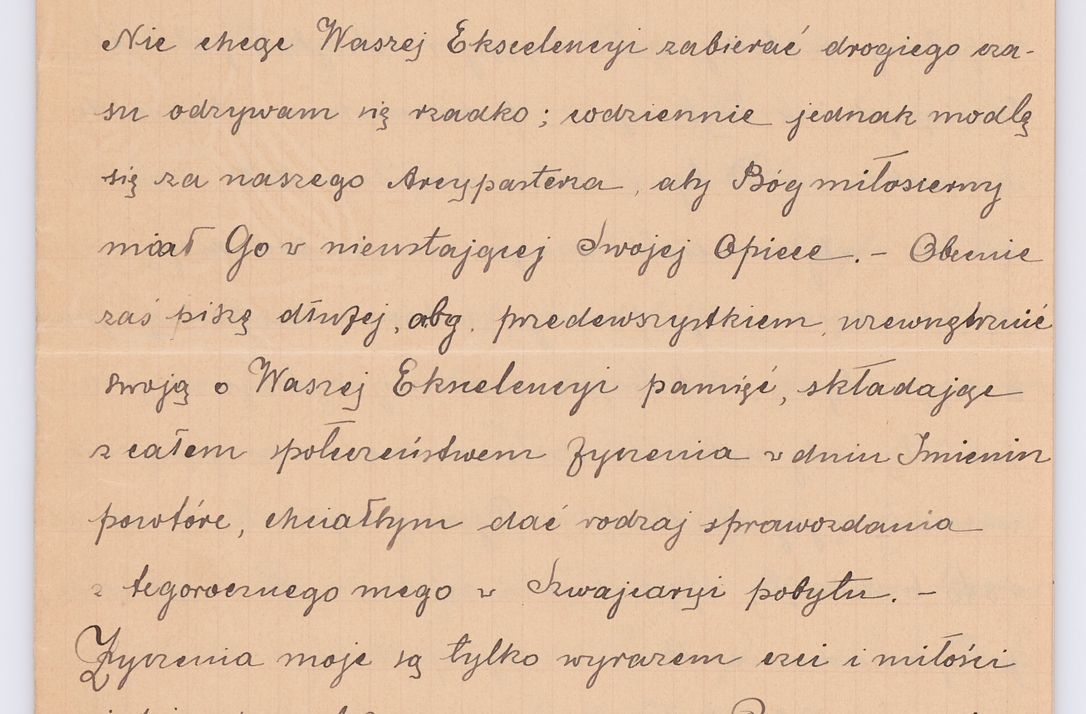 Nie chcąc Waszej Ekscelencyi zabierać drogiego cza-
su odzywam się rzadko; codziennie jednak modlę
się za naszego Arcypasterza, aby Bóg miłosierny
miał Go w nieustającej Swojej Opiece. – Obecnie
zaś piszę dłużej, aby przedewszystkiem, uzewnętrznić
swoją o Waszej Ekscelencyi pamięć, składając
z całem społeczeństwem życzenia w dniu Imienin
powtóre, chciałbym dać rodzaj sprawozdania
z tegorocznego mego w Szwajcaryi pobytu. –
Życzenia moje są tylko wyrazem czci i miłości